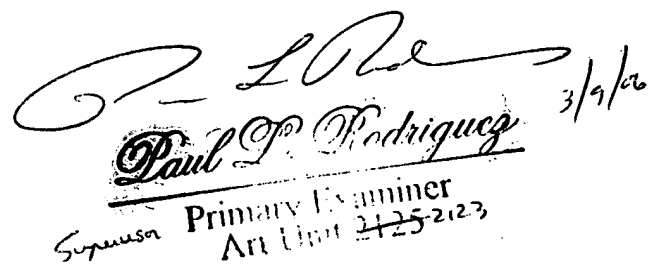 3/9/06
Paul L. Rodriguez
Supervisor Primary Examiner
Art Unit 2125 2123